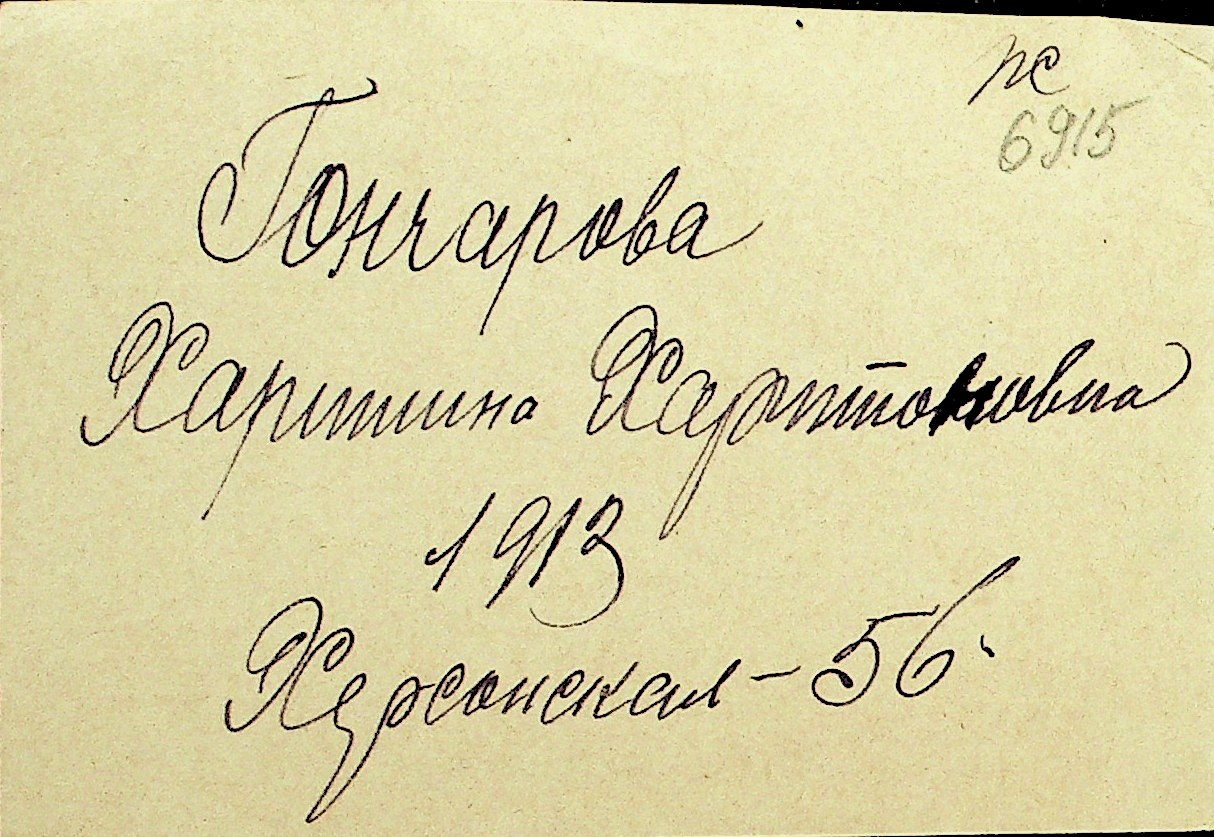 пс
6915
Гончарова
Харитина Харитоновна
1913
Херсонская - 56.